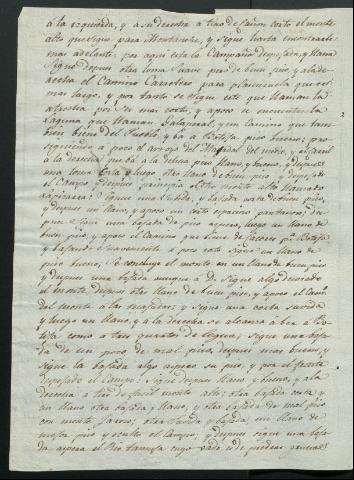 à la izquierda, y a su derecha a tiro de cañon corto el monte
alto que sigue para Montanchez, y sigue hasta encontrarle
mas adelante; por aqui esta la Campaña despejada, y llana
Sigue despues otra loma suave piso de buen piso, y a la de-
recha el Camino Carretero para plasencuela que es
mas largo, y por tanto se sigue este que llaman la
por ser mas corto, y apoco se encuentra la
laguna que llaman Galapinal y un camino que tam-
bien viene del Pueblo, y bá à Botija piso bueno; pro-
siguiendo a poco el arroyo del del medio, y el carril
à la derecha que bà à la dehesa piso llano, y bueno, y despues
una loma corta y luego otro llano de buen piso, y despejado
el Campo y despues principia el otro monte alto llamado
: sigue una subida, y bajada corta de buen piso,
y despues un llano, y apoco un corto espacio pantanoso; des-
pues sigue una bajada de piso aspero, luego un llano de
buen piso, y apoco el Camino que viene de Caceres pa Botija
y bajando suavemente a poco corto sigue un llano de
piso bueno; Se concluye el monte en un llano de buen piso
y despues una bajada aunque a D. sigue algo desviado
el monte despues otro llano de buen piso, y apoco el Cami
del monte a las majadas; y sigue una corta subida
y luego un llano; y à la derecha se alcanza à ber à Bo-
tija como a tres quartos de legua; sigue una baja
da de un poco de mal piso, despues mas bueno, y
sigue la bajada algo aspero su piso, y por el frente
despejado el Campo: Sigue despues llano y bueno, y à la
derecha a tiro de fusil monte alto; otra bajada corta y
un llano otra bajada y llano, y otra bajada de mal piso
con monte ; otra subida y bajada; un llano de
mejor piso y oculto el Campo; y despues sigue una baja
da aspera el Rio tamuja cuyo vado es de piedras